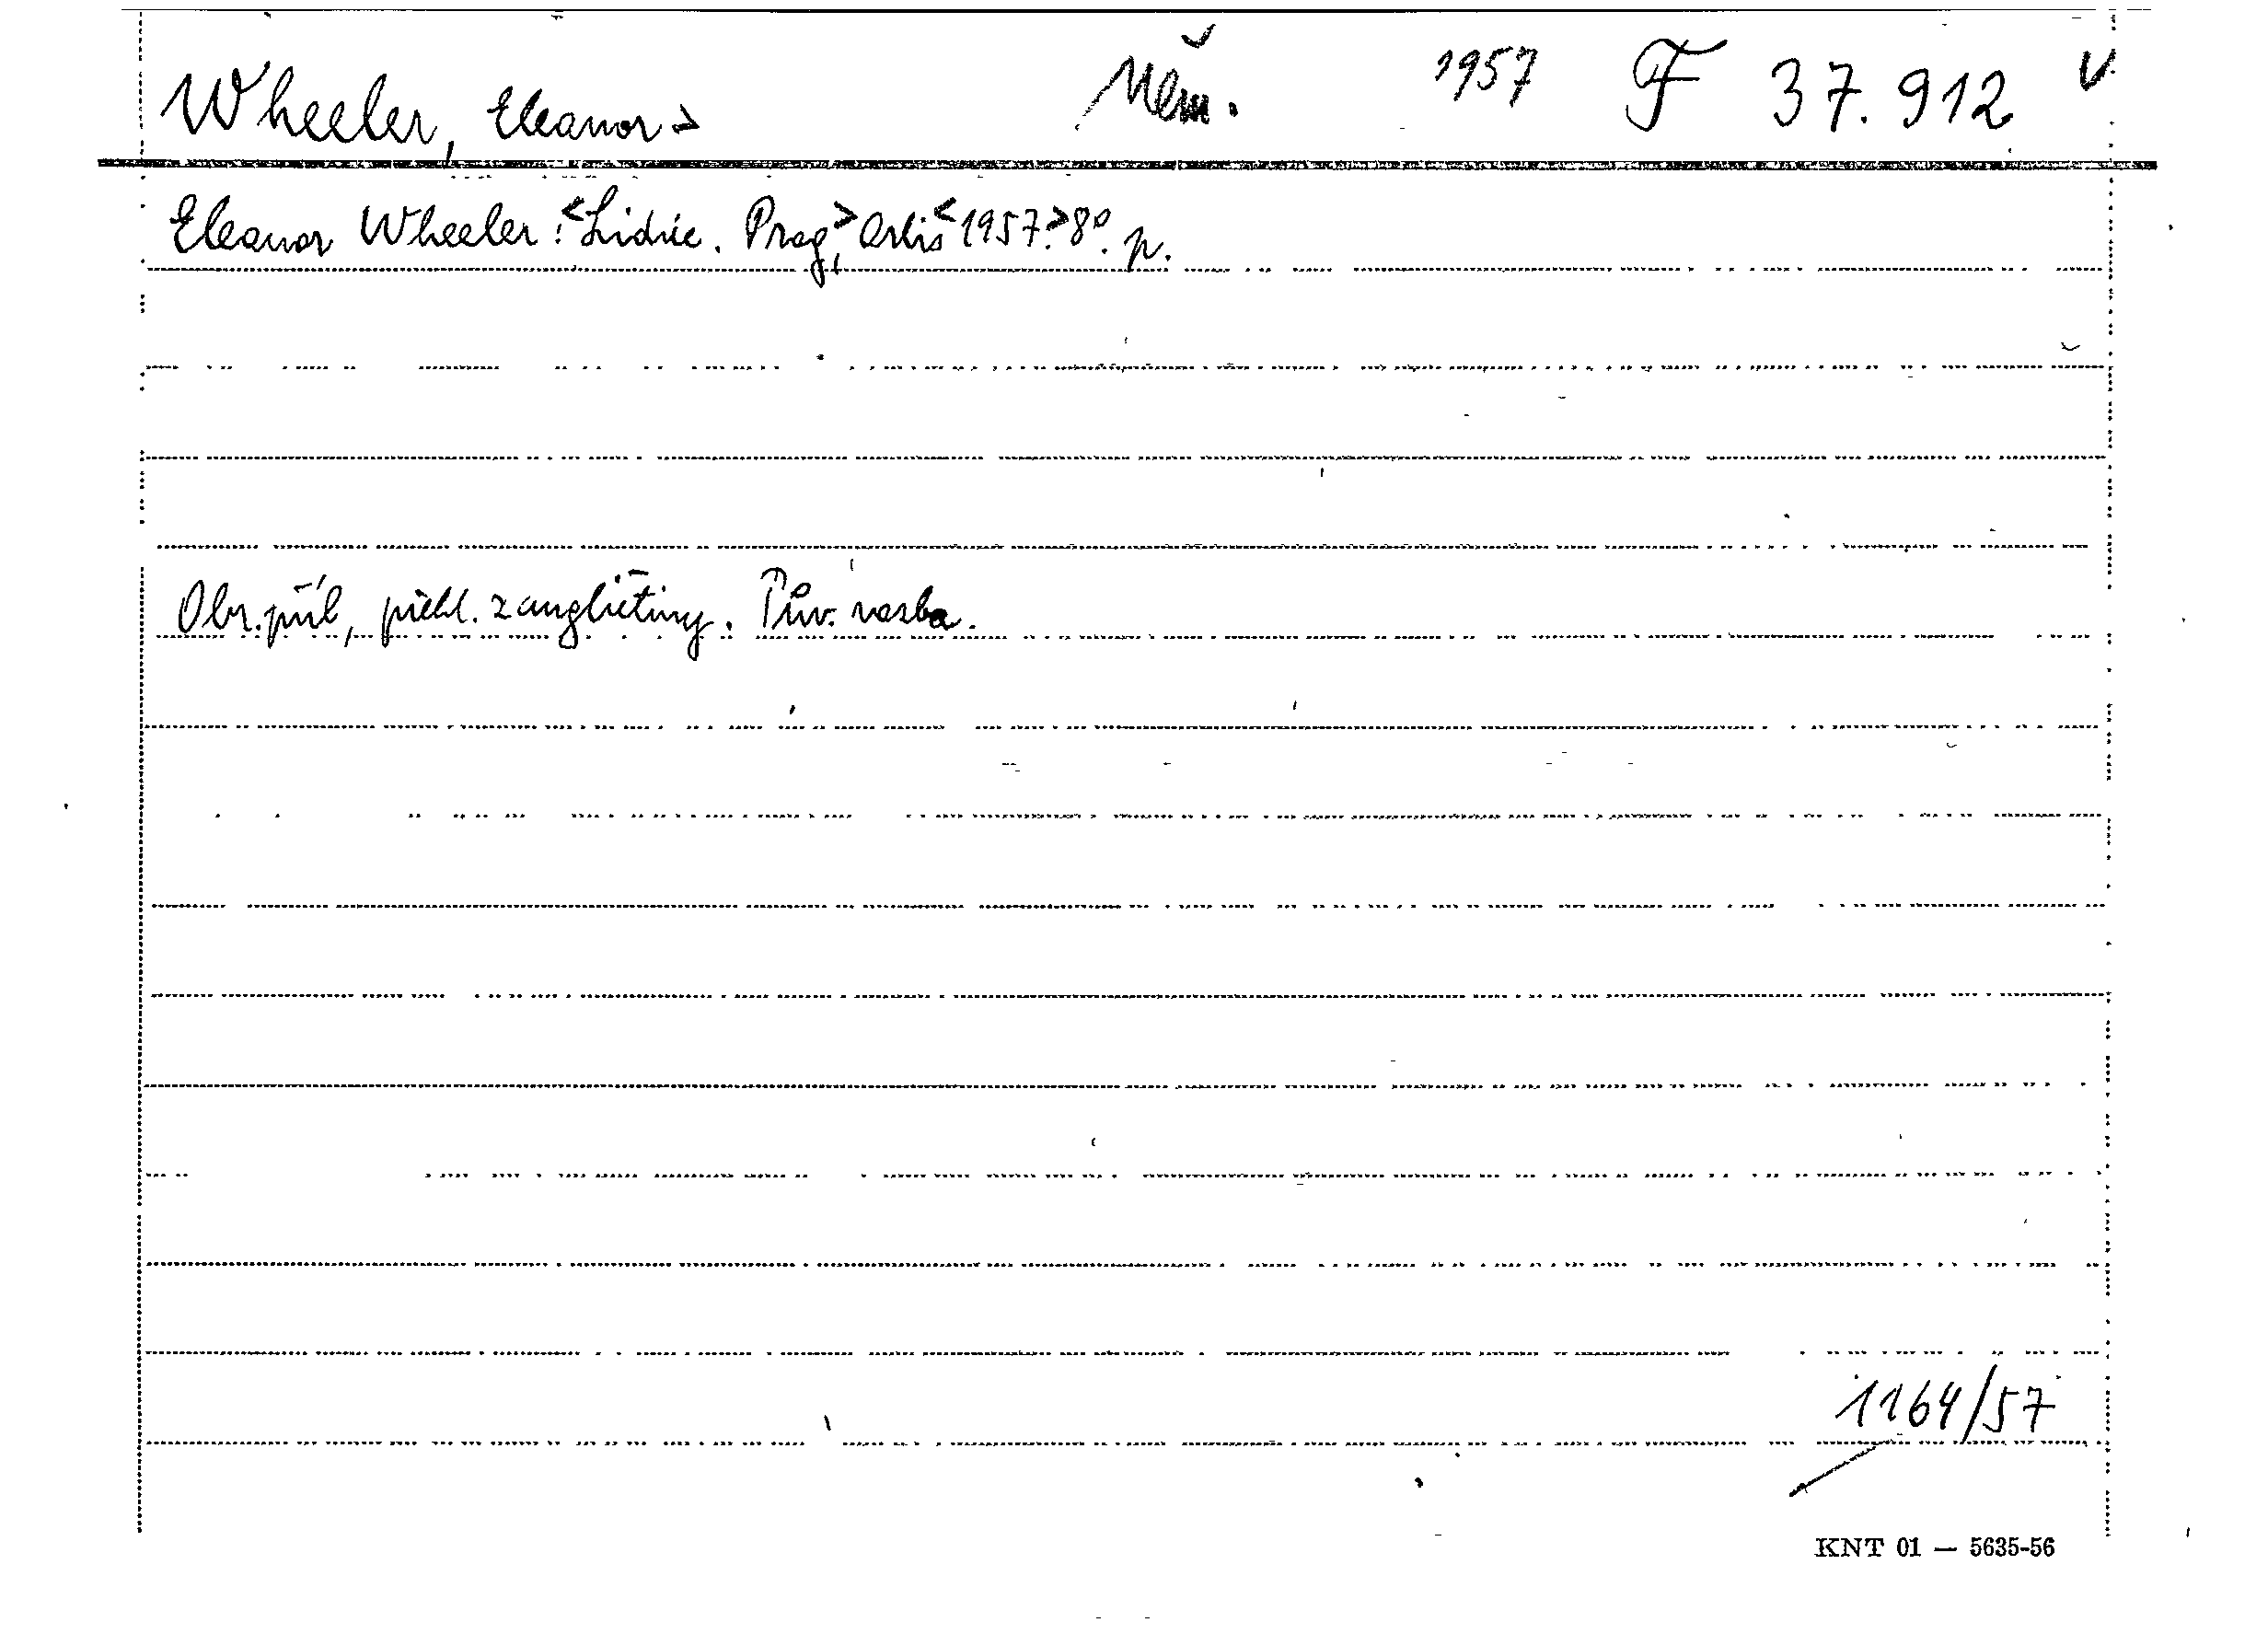 Wheeler, Eleanor > Něm. 1957 F 37.912 v
Eleanor Wheeler: <Lidice. Prag,> Orbis <1957.> 8°. p.
Obr. příl., překl. z angličtiny. Pův. vazba.
1164/57
KNT 01 — 5635-56